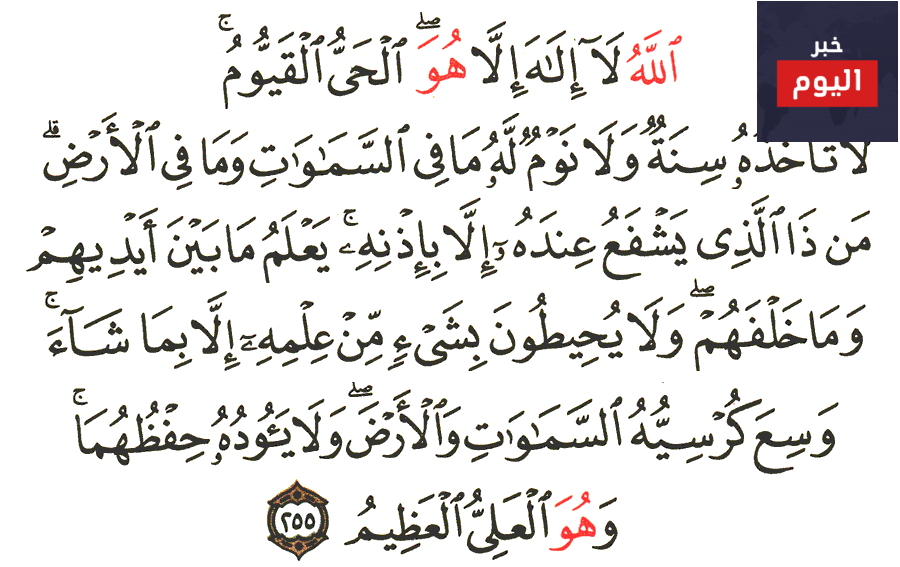 خبر
اليوم
ٱللَّهُ لَآ إِلَـٰهَ إِلَّا هُوَ ۖ ٱلْحَىُّ ٱلْقَيُّومُ ۚ
لَا تَأْخُذُهُۥ سِنَةٌ وَلَا نَوْمٌ لَّهُۥ مَا فِى ٱلسَّمَـٰوَٰتِ وَمَا فِى ٱلْأَرْضِ ۗ
مَن ذَا ٱلَّذِى يَشْفَعُ عِندَهُۥٓ إِلَّا بِإِذْنِهِۦ ۚ يَعْلَمُ مَا بَيْنَ أَيْدِيهِمْ
وَمَا خَلْفَهُمْ ۖ وَلَا يُحِيطُونَ بِشَىْءٍ مِّنْ عِلْمِهِۦٓ إِلَّا بِمَا شَآءَ ۚ
وَسِعَ كُرْسِيُّهُ ٱلسَّمَـٰوَٰتِ وَٱلْأَرْضَ ۖ وَلَا يَـُٔودُهُۥ حِفْظُهُمَا ۚ
وَهُوَ ٱلْعَلِىُّ ٱلْعَظِيمُ ٢٥٥